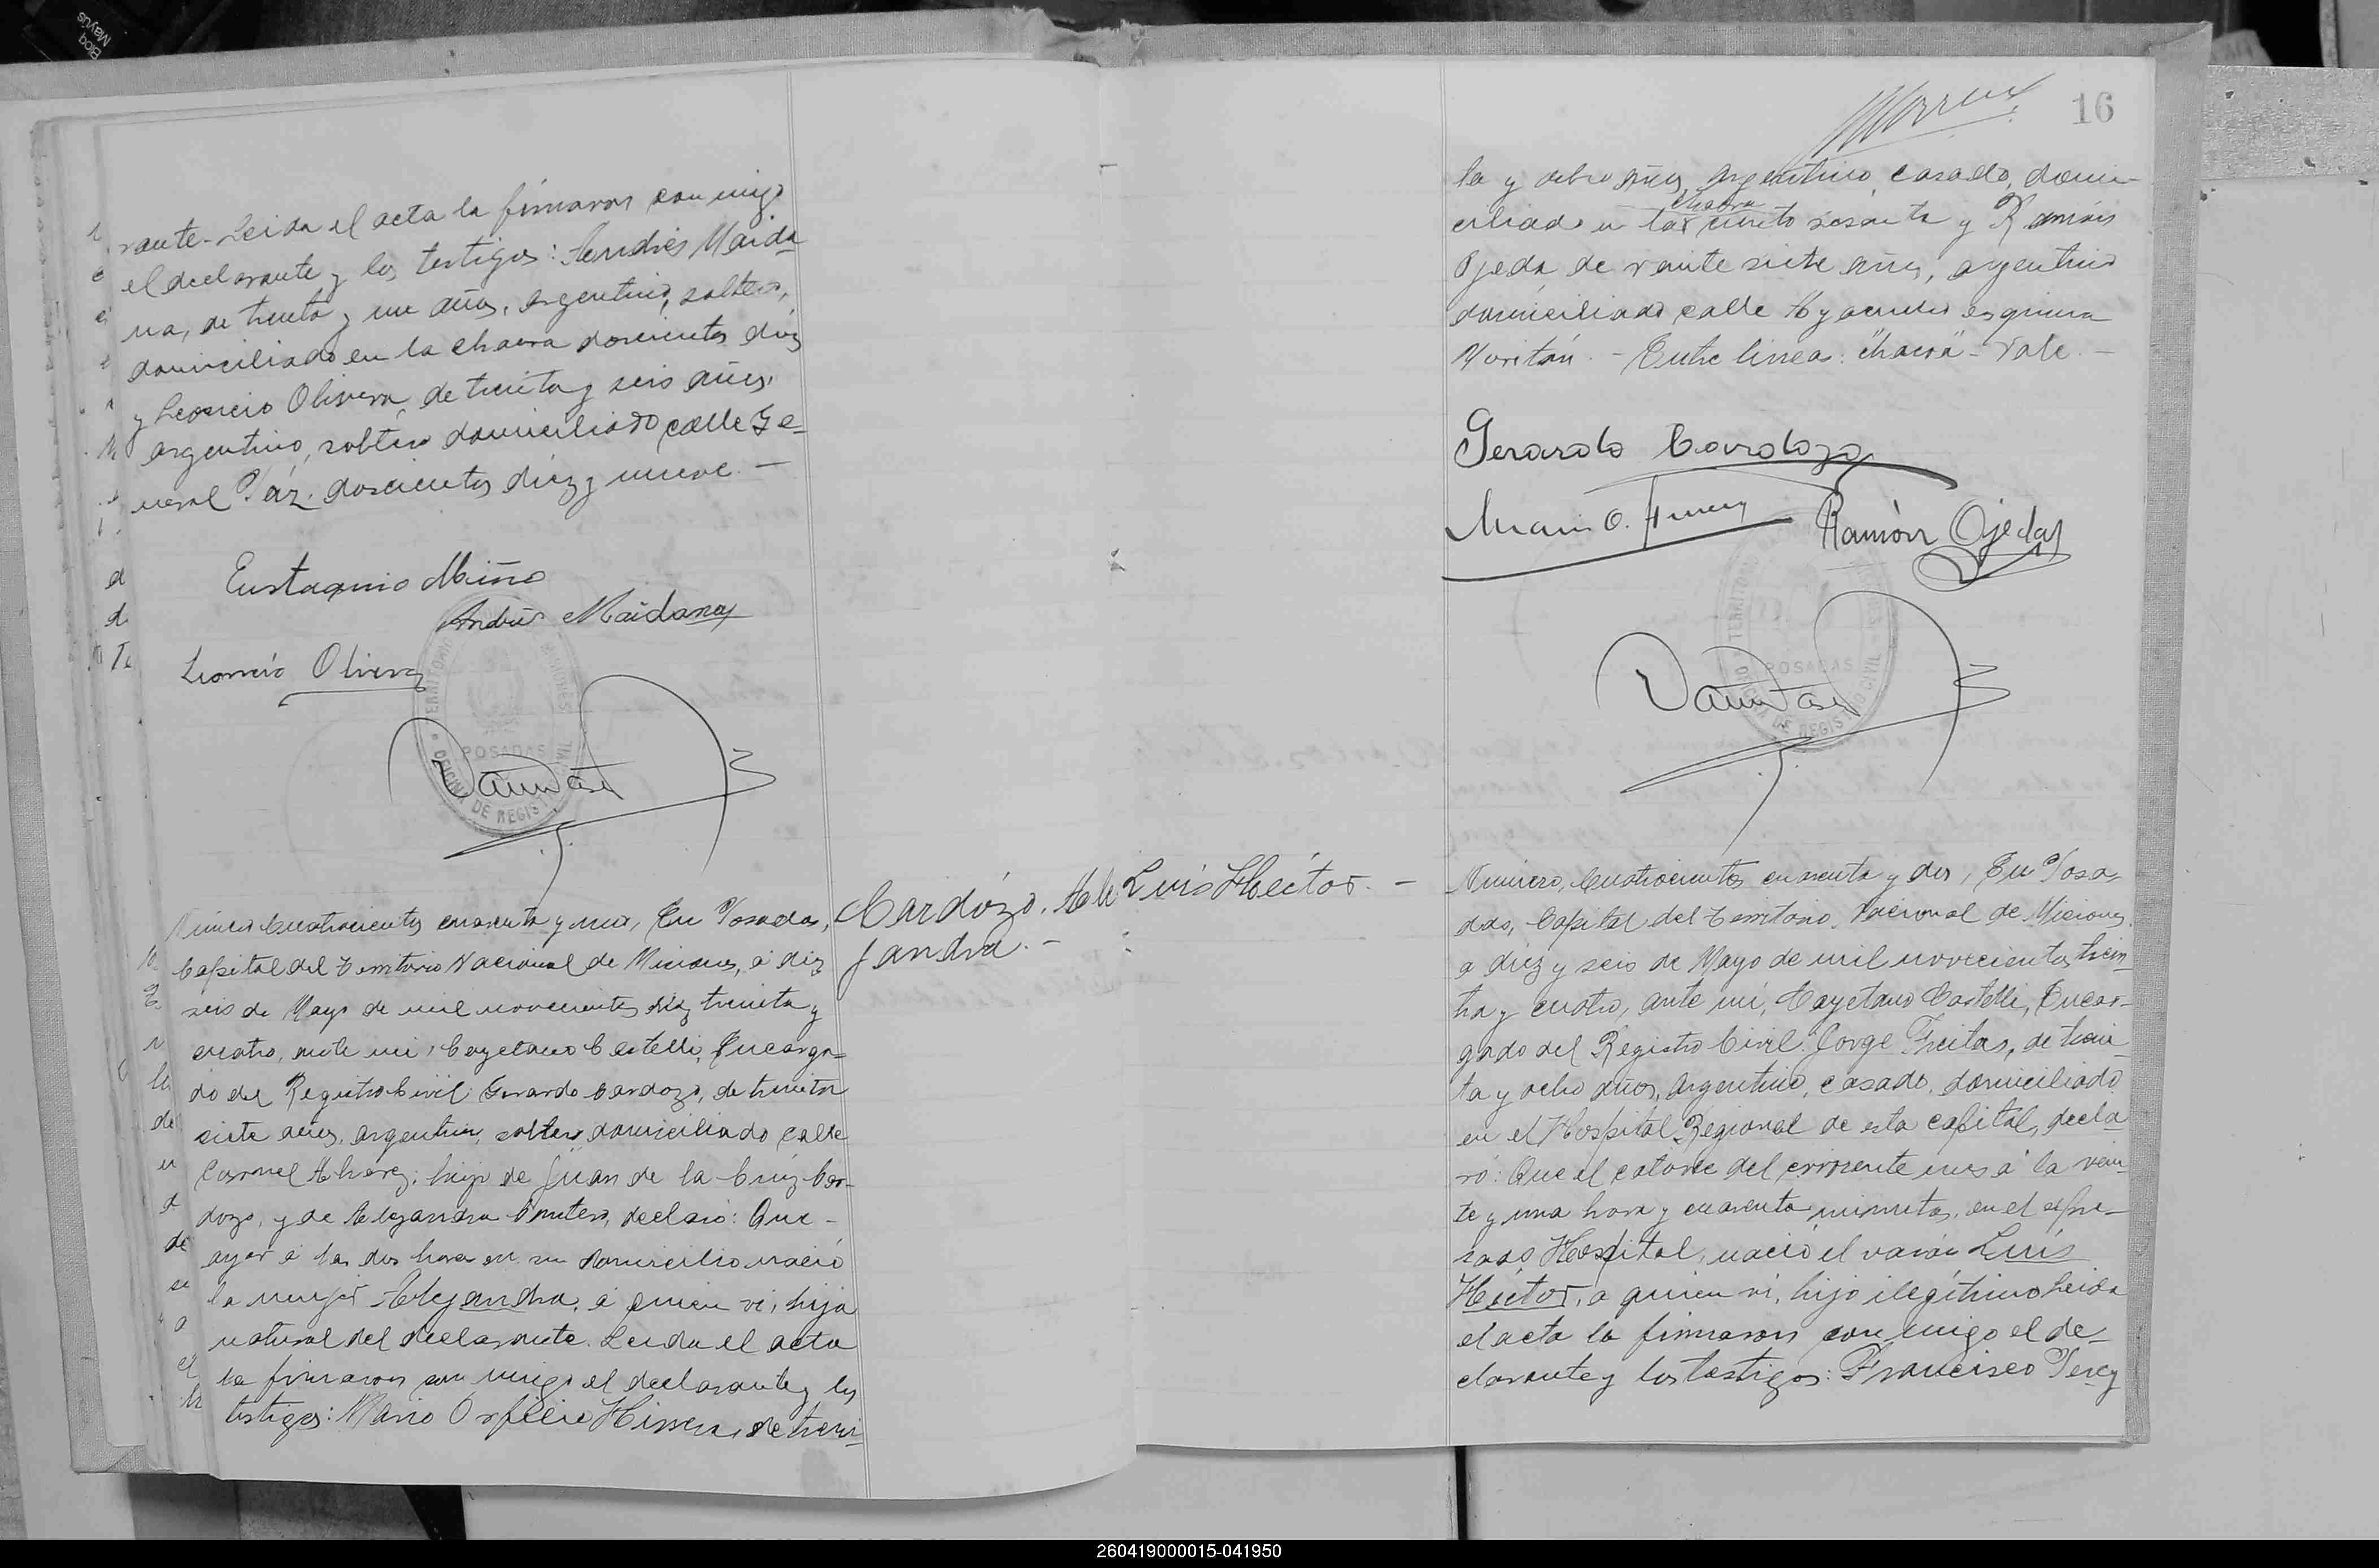 rante. Leida el acta la firmaron conmigo
el declarante y los testigos: Andrés Maida
na, de treinta y un años, argentino, soltero,
domiciliado en la chacra doscientos diez
y Leoncio Olivera, de treinta y seis años,
argentino, soltero domiciliado calle Ge-
neral Páz doscientos diez y nueve.—
Eustaquio Miño
Andrés Maidana
Leoncio Olivera
POSADAS
OFICINA DE REGISTRO CIVIL
Número Cuatrocientos cuarenta y uno, En Posadas,
Capital del Territorio Nacional de Misiones, á diez
seis de Mayo de mil novecientos treinta y
cuatro, ante mi, Cayetano Castelli, Encarga-
do del Registro Civil: Gerardo Cardozo, de treinta
siete años, argentino, soltero domiciliado calle
Coronel Alvarez; hijo de Juan de la Cruz Car-
dozo, y de Alejandra, declaró: Que-
ayer á las dos horas en su domicilio nació
la mujer Alejandra, á quien ví, hija
natural del declarante. Leida el acta
la firmaron conmigo el declarante y los
testigos: Mario Orfilio, de trein-
Cardózo, Ale
jandra.-
16
ta y ocho años, argentino, casado, domi-
chacra
ciliado en la ciento sesenta y Ramón
Ojeda, de veinte siete años, argentino
domiciliado calle Ayacucho esquina
. - Entre linea: "chacra" - Vale.-
Gerardo Cardozo
Ramón Ojeda
POSADAS
OFICINA DE REGISTRO CIVIL
Luis Hector.-
Número, Cuatrocientos cuarenta y dos, En Posa-
das, Capital del Territorio Nacional de Misiones,
a diez y seis de Mayo de mil novecientos trein-
ta y cuatro, ante mí, Cayetano Castelli, Encar-
gado del Registro Civil: Jorge Freitas, de trein-
ta y ocho años, argentino, casado, domiciliado
en el Hospital Regional de esta capital, decla
ró: Que el catorce del corriente mes á la vein-
te y una hora y cuarenta minutos, en el expre-
sado Hospital, nació el varón Luis
Héctor, a quien ví, hijo ilegítimo Leida
el acta la firmaron conmigo el de-
clarante y los testigos: Francisco
260419000015-041950